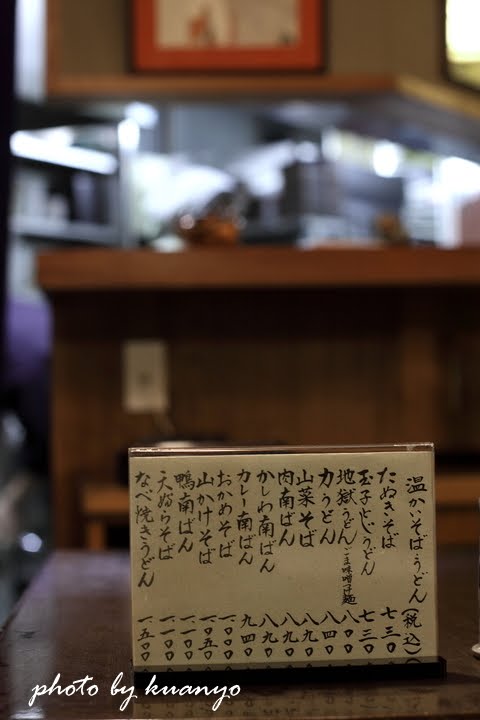 温かいそば・うどん(税込)
たぬきそば 七三〇
玉子とじうどん 七三〇
地獄うどん ごま味噌つけ麺 八〇〇
力うどん 八四〇
山菜そば 八九〇
肉南ばん 八九〇
かしわ南ばん 八九〇
カレー南ばん 九四〇
おかめそば 一〇〇〇
山かけそば 一〇五〇
鴨南ばん 一一〇〇
天ぷらそば 一一〇〇
なべ焼きうどん 一五〇〇
photo by kuanyo